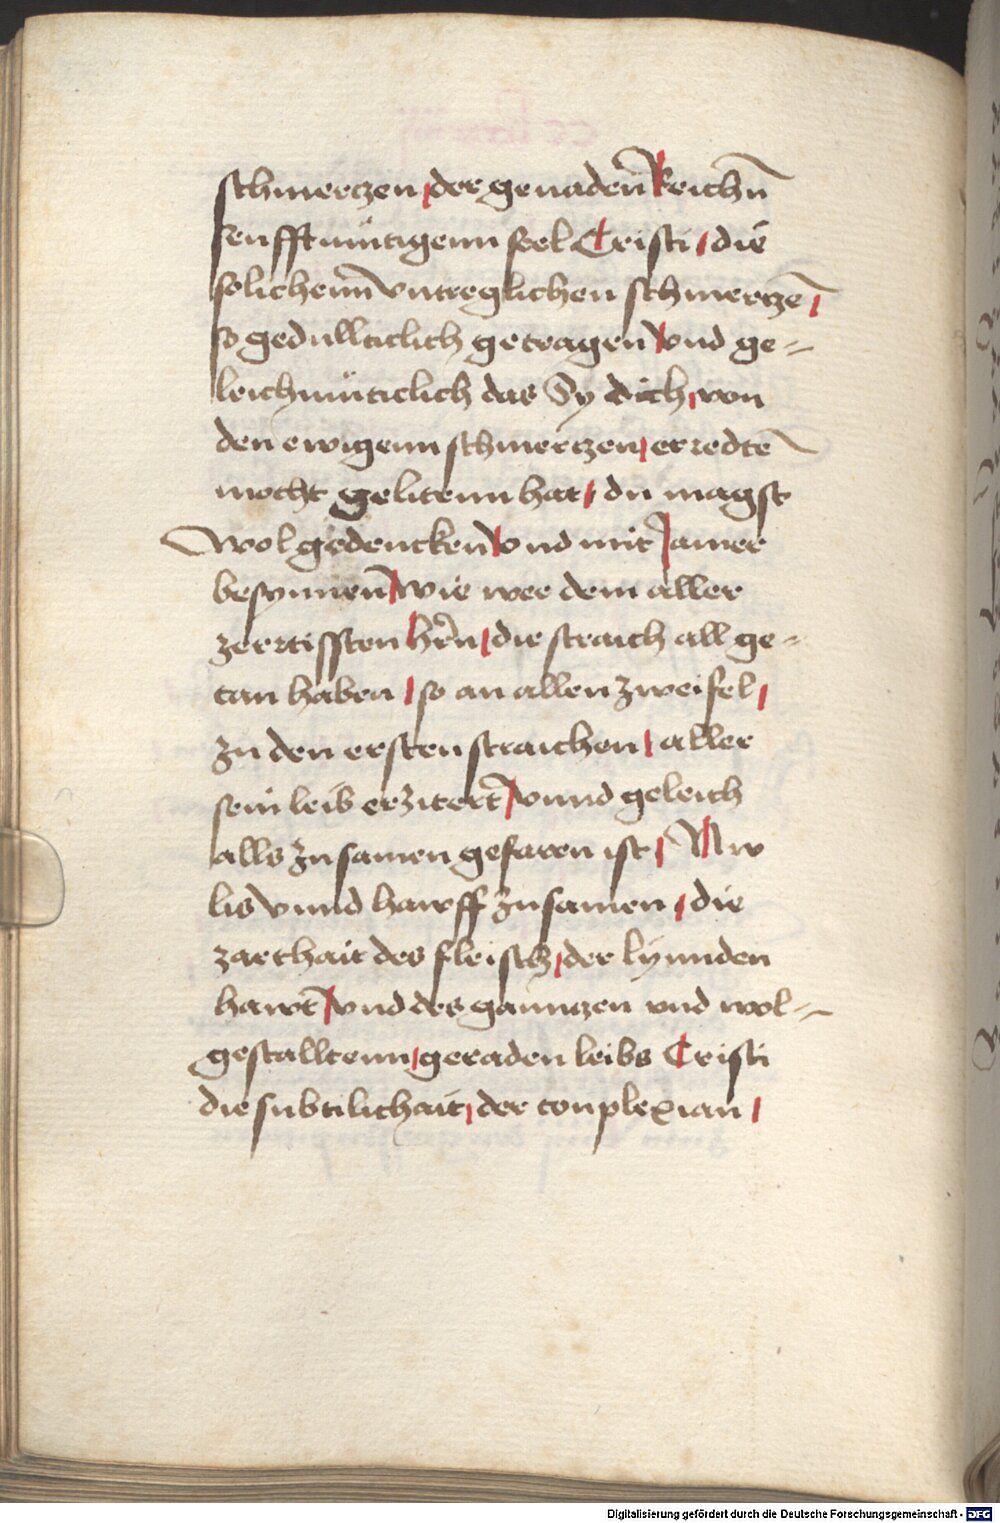 schmerczen / der genaden Reichn̄
senfftmütigenn seel Cristi / die
solichenn̄ vntreglichen schmerczē /
so gedullticlich getragen vnd ge-
leichmüticlich das Sy dich / von
den ewigenn schmerczen / erredtē
mocht gelitenn hat / du magst
wol gedencken vnd mit Jamer
besynnen̄ wie wee dem aller
zerttissten hr̄n / die straich all ge-
tan haben / so an allen zweifel /
zu den ersten straichen / aller
sein leib erzitert̄ vnnd geleich
alls zusamen gefaren ist / Nw
lis vnnd hawff zusamen / die
zarthait des fleisch / der lynnden
hawt̄ vnd des ganntzen vnd wol-
gestalltenn / geraden leibs Cristi
die subtilichait / der conplexian /
Digitalisierung gefördert durch die Deutsche Forschungsgemeinschaft - DFG